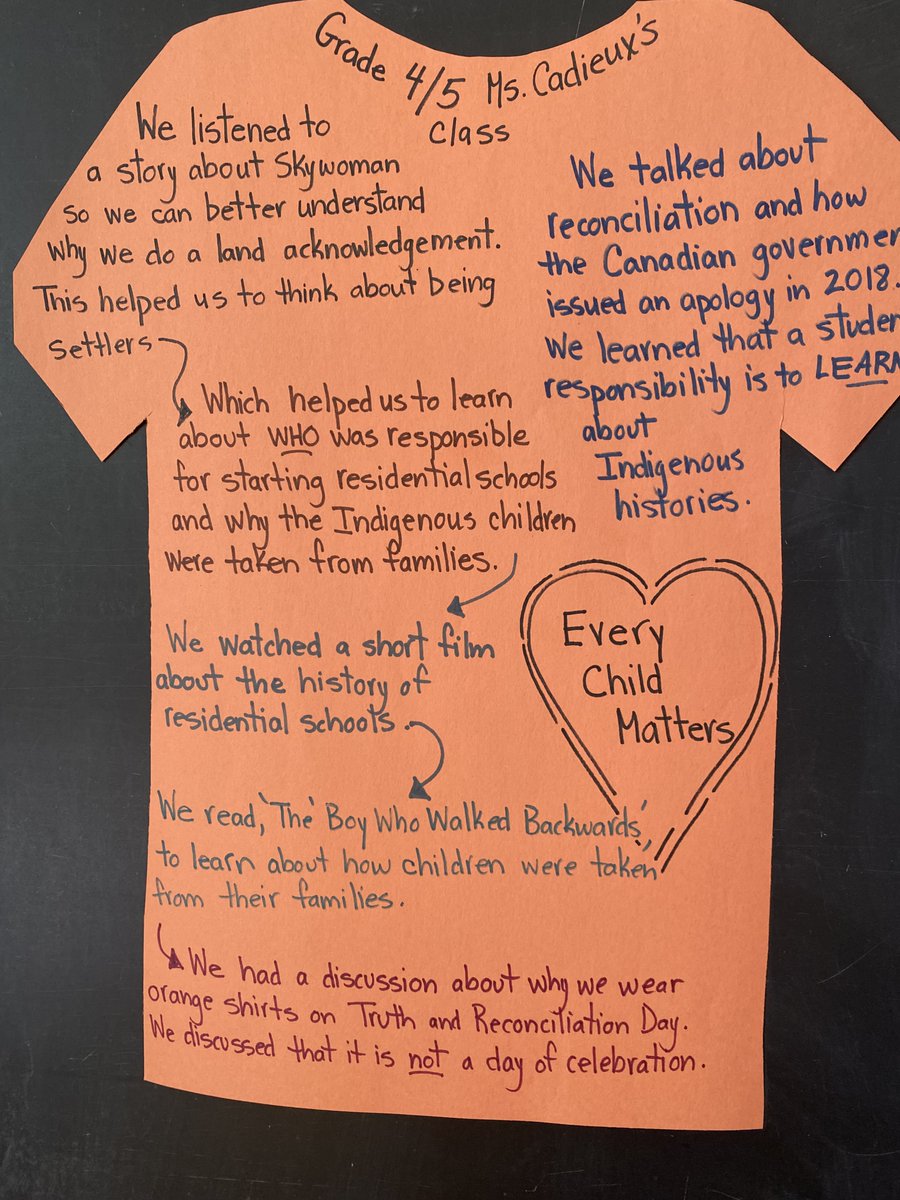 Grade 4/5 Ms. Cadieux's
Class
We listened to
a story about Skywoman
so we can better understand
why we do a land acknowledgement.
This helped us to think about being
settlers
Which helped us to learn
about WHO was responsible
for starting residential schools
and why the Indigenous children
were taken from families.
We watched a short film
about the history of
residential schools.
We read, 'The' Boy Who Walked Backwards,'
to learn about how children were taken
from their families.
We had a discussion about why we wear
orange shirts on Truth and Reconciliation Day.
We discussed that it is not a day of celebration.
We talked about
reconciliation and how
the Canadian governmen
issued an apology in 2018.
We learned that a studen
responsibility is to LEARN
about
Indigenous
histories.
Every
Child
Matters